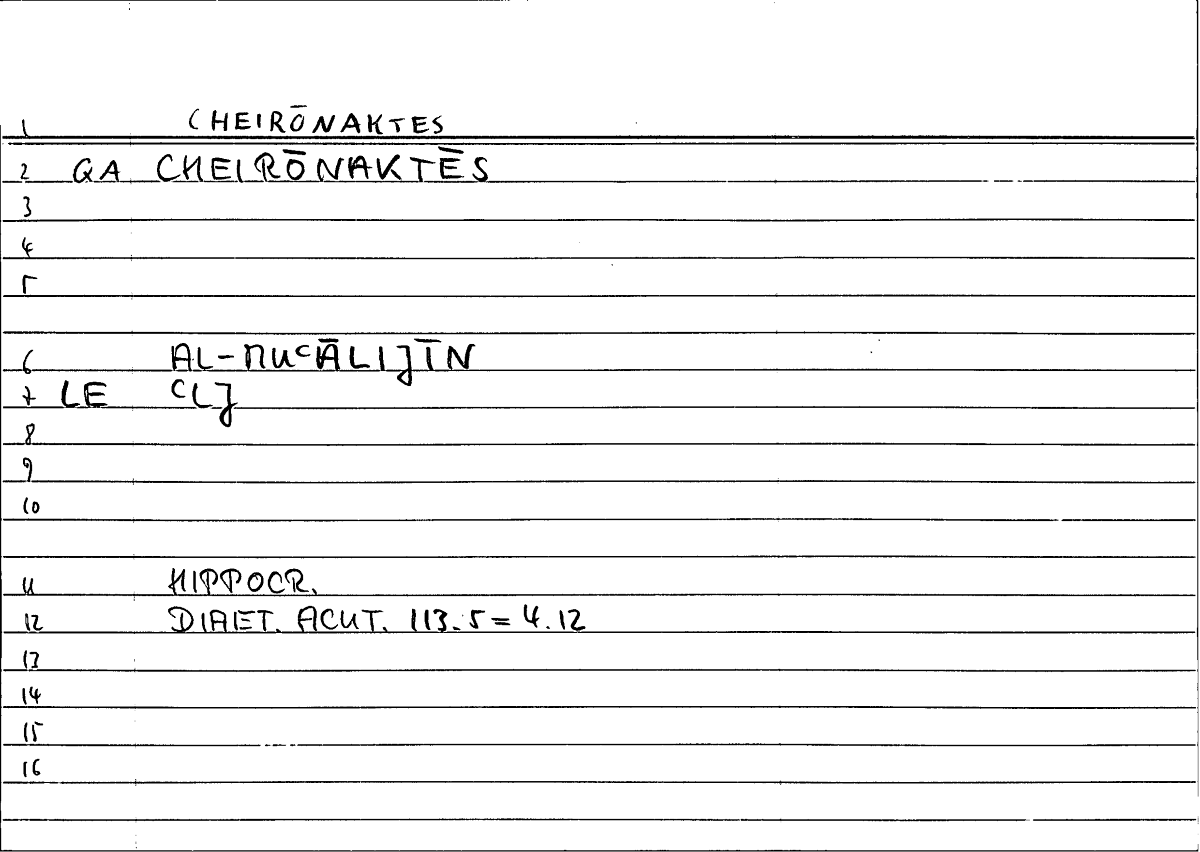 1 CHEIRŌNAKTES
2 QA CHEIRŌNAKTĒS
3
4
5
6 AL-MUᶜĀLIJĪN
7 LE ᶜLJ
8
9
10
11 HIPPOCR.
12 DIAET. ACUT. 113.5 = 4.12
13
14
15
16